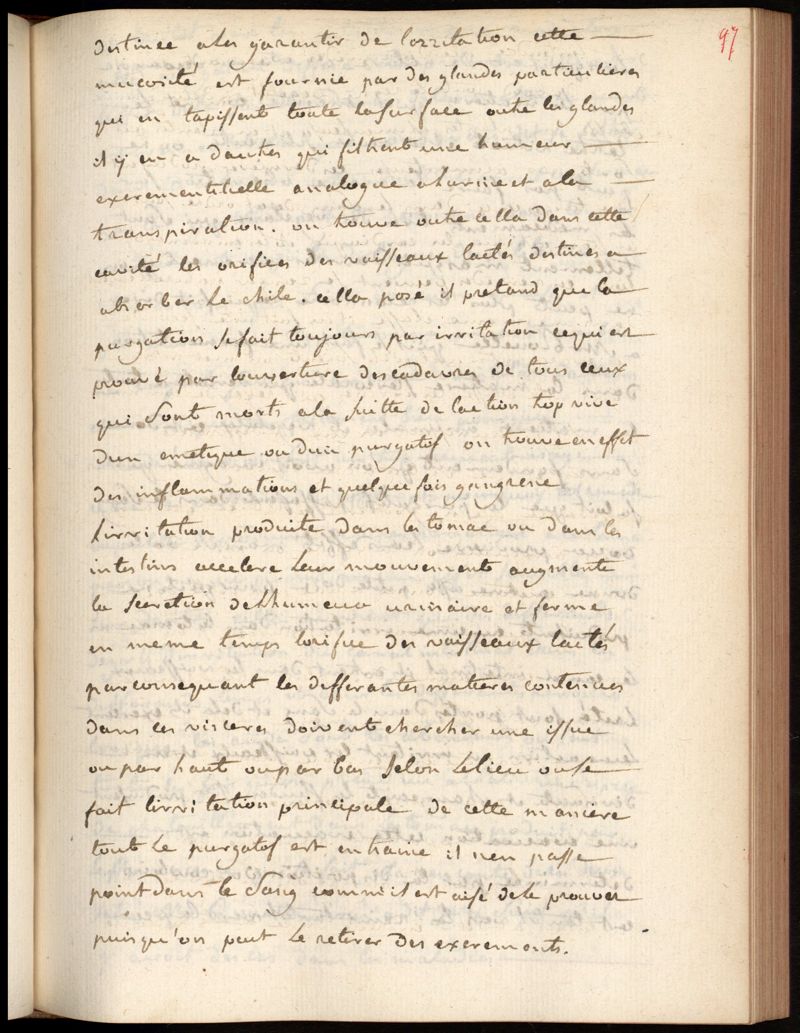 97
destinee a les garantir de lirritation cette
mucosité est fournie par des glandes particulieres
qui en tapissent toute la surface outre les glandes
il ij en a dautres qui filtrent une humeur
excrementitielle analogue a lurine et a la
transpiration. on trouve outre cella dans cette
cavité les orifices des vaisseaux lactés destines a
absorber le chile. cella posé il pretand que la
purgation se fait toujours par irritation ce qui est
prouvé par louverture des cadavres de tous ceux
qui sont morts a la suitte de laction trop vive
dun emetique ou dun purgatif on trouve en effet
des inflammations et quelque fois gangrene
lirritation produite dans lestomac ou dans les
intestins accelere leur mouvements augmente
la secretion de lhumeur urinaire et ferme
en meme temps lorifice des vaisseaux lactés
par consequant les differantes matieres contenues
dans ces visceres doivent chercher une issue
ou par haut ou par bas selon le lieu ou se
fait lirritation principale de cette maniere
tout le purgatif est entrainé il nen passe
point dans le sang comme il est aisé de le prouver
puisqu'on peut le retirer des excrements.